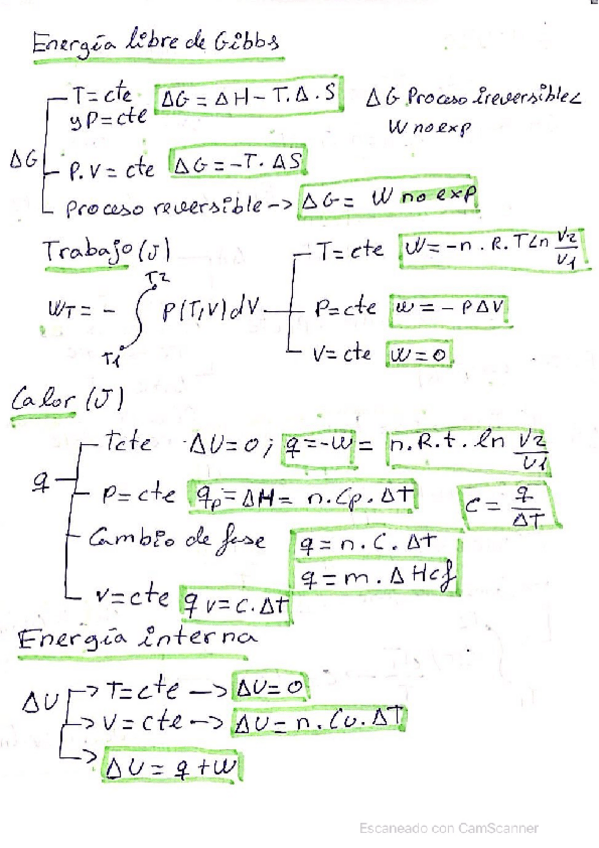 Energía libre de Gibbs
ΔG
T=cte y P=cte ΔG = ΔH - T.Δ.S
ΔG Proceso ireversible<
W no exp
P.V = cte ΔG = -T. ΔS
Proceso reversible -> ΔG = W no exp
Trabajo (J)
WT = - ∫ T1 T2 P(T,V) dV
T=cte W = -n.R.T Ln V2/V1
P=cte w = - PΔV
V=cte W=0
Calor (J)
q
Tcte ΔU=0; q=-W = n.R.t. ln V2/V1
P=cte qp=ΔH= n.Cp.Δt
C = q/ΔT
Cambio de fase q = n. C. ΔT
q = m. ΔHcf
V=cte q v=C.Δt
Energía interna
ΔU
-> T=cte -> ΔU=0
-> V=cte -> ΔU=n.Cv.ΔT
-> ΔU = q+W
Escaneado con CamScanner